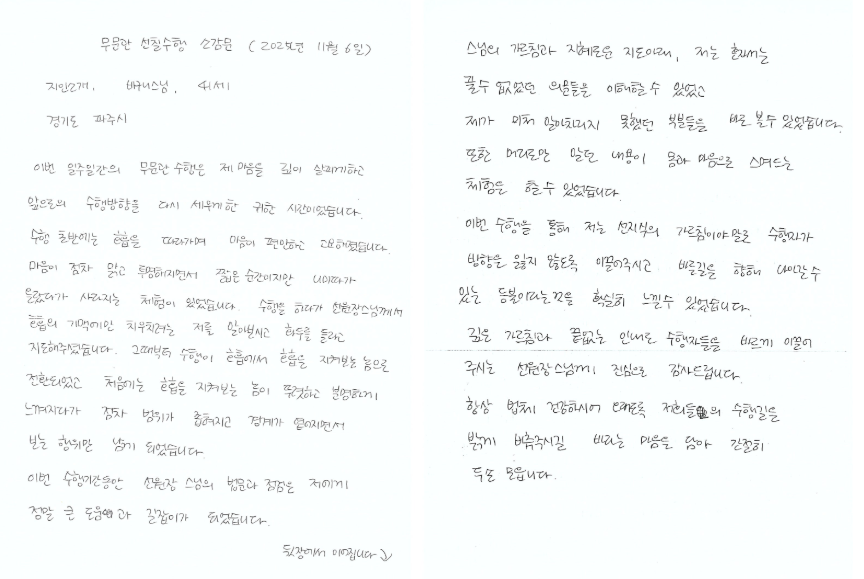 무문관 선칠수행 소감문 (2025년 11월 6일)
지인스님, 비구스님, 41세
경기도 파주시
이번 일주일간의 무문관 수행은 제 마음을 깊이 살피게하고
앞으로의 수행방향을 다시 세우게한 귀한 시간이었습니다.
수행 초반에는 호흡을 따라가며 마음이 편안하고 고요하였습니다.
마음이 점차 맑고 투명해지면서 짧은 순간이지만 니미따가
올랐다가 사라지는 체험이 있었습니다. 수행을 하다가 선원장스님께서
호흡의 기멱에만 치우쳐있는 저를 알아보시고 화두를 들라고
지도해주셨습니다. 그때부터 수행이 호흡에서 호흡을 지켜보는 놈으로
전환되었고 처음에는 호흡을 지켜보는 놈이 뚜렷하고 분명하게
느껴지다가 점차 범위가 좁혀지고 경계가 옅어지면서
보는 행위만 남게 되었습니다.
이번 수행기간동안 선원장 스님의 법문과 점검은 저에게
정말 큰 도움과 길잡이가 되었습니다.
뒷장에서 이어집니다
스님의 가르침과 지혜로운 지도아래, 저는 혼자서는
풀수 없었던 의문들을 이해할 수 있었고
제가 미처 알아차리지 못했던 부분들을 바로 볼 수 있었습니다.
또한 머리로만 알던 내용이 몸과 마음으로 스며드는
체험을 할 수 있었습니다.
이번 수행을 통해 저는 선지식의 가르침이야말로 수행자가
방향을 잃지 않도록 이끌어주시고 바른길을 향해 나아갈 수
있는 등불이라는 것을 확실히 느낄 수 있었습니다.
깊은 가르침과 끝없는 인내로 수행자들을 바르게 이끌어
주시는 선원장스님께 진심으로 감사드립니다.
항상 법체 건강하시어 오래도록 저희들의 수행길을
밝게 비춰주시길 바라는 마음을 담아 간절히
두손 모읍니다.